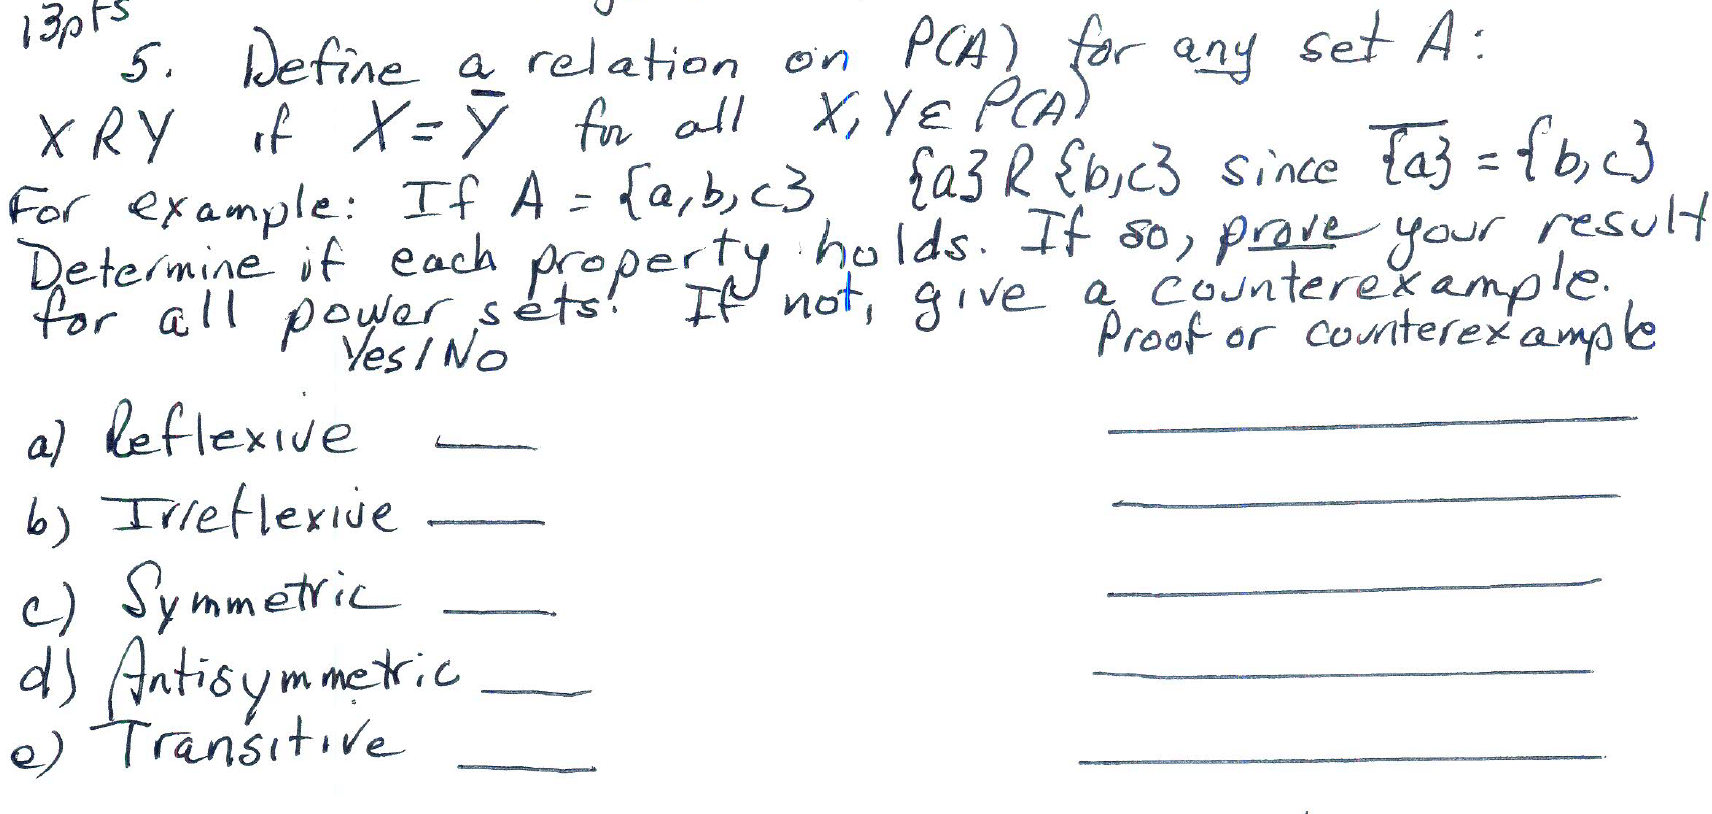 13pts
5. Define a relation on P(A) for any set A:
X R Y if X = Y̅ for all X, Y ε P(A)
For example: If A = {a,b,c} {a} R {b,c} since \overline{{a}} = {b,c}
Determine if each property holds. If so, prove your result
for all power sets. If not, give a counterexample.
Yes / No Proof or counterexample
a) Reflexive ____ ____
b) Irreflexive ____ ____
c) Symmetric ____ ____
d) Antisymmetric ____ ____
e) Transitive ____ ____